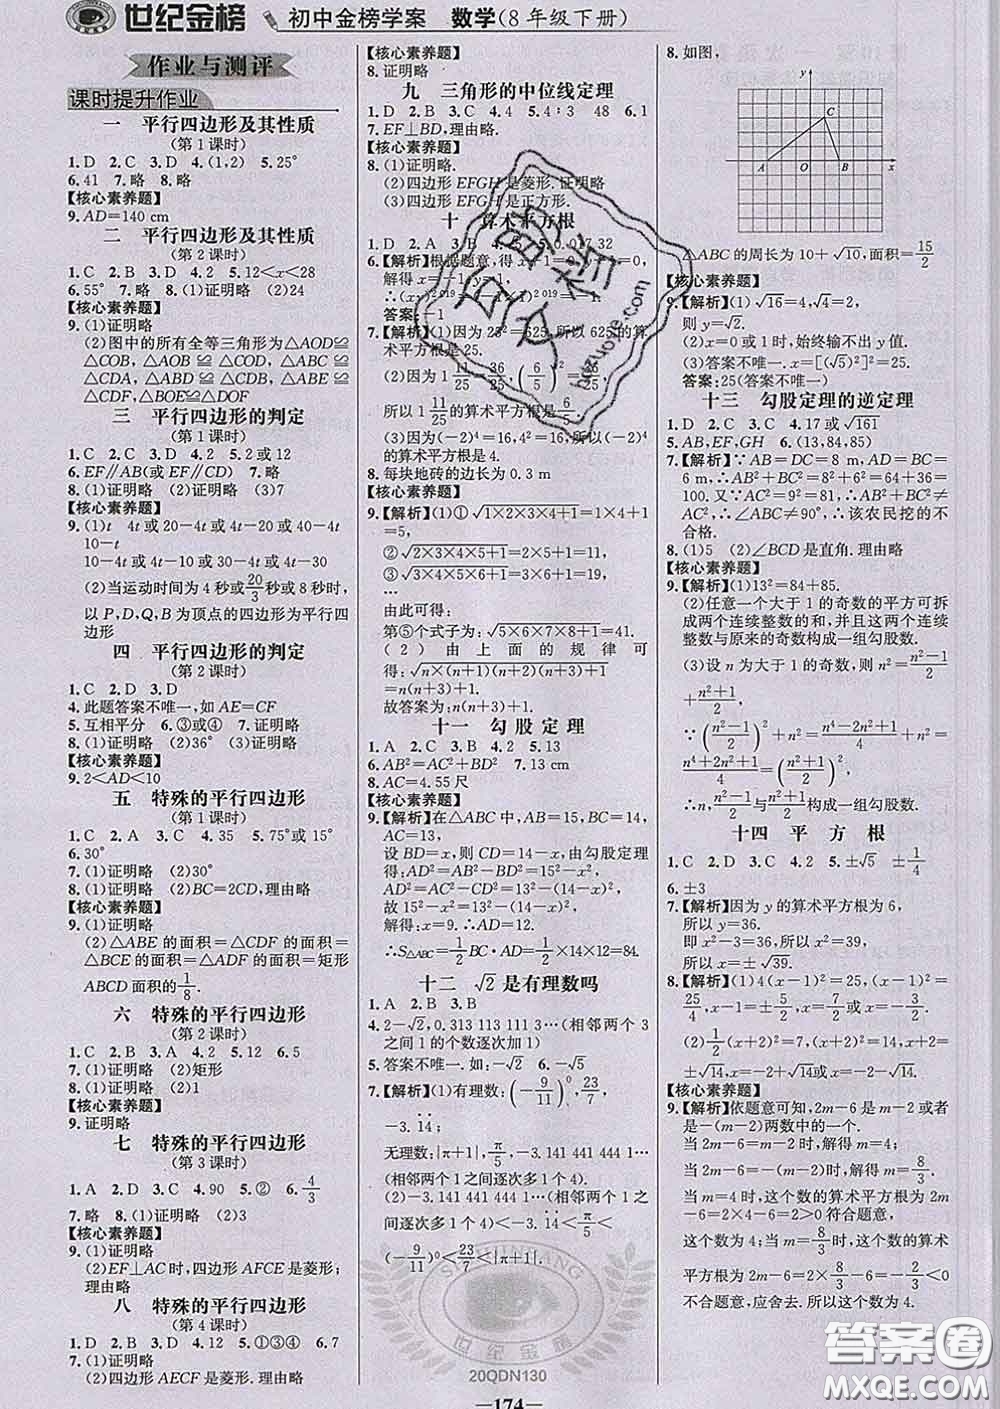 世纪金榜 初中金榜学案 数学(8年级下册)
作业与测评
课时提升作业
一 平行四边形及其性质
(第1课时)
1.D 2.C 3.D 4.(1,2) 5.25°
6.41 7.略 8.略
【核心素养题】
9.AD=140 cm
二 平行四边形及其性质
(第2课时)
1.C 2.B 3.D 4.2 5.12<x<28
6.55° 7.略 8.(1)证明略 (2)24
【核心素养题】
9.(1)证明略
(2)图中的所有全等三角形为△AOD≌
△COB, △AOB ≌ △COD, △ABC ≌
△CDA, △ABD ≌ △CDB, △ABE ≌
△CDF,△BOE≌△DOF
三 平行四边形的判定
(第1课时)
1.C 2.D 3.C 4.2 5.2或12
6.EF∥AB(或EF∥CD) 7.略
8.(1)证明略 (2)证明略 (3)7
【核心素养题】
9.(1)t 4t或20-4t或4t-20或40-4t
10-t
10-4t或4t-10或30-4t或4t-30
(2)当运动时间为4秒或20/3秒或8秒时,
以P,D,Q,B为顶点的四边形为平行四
边形
四 平行四边形的判定
(第2课时)
1.C 2.D 3.D
4.此题答案不唯一,如AE=CF
5.互相平分 6.③或④ 7.证明略
8.(1)证明略 (2)36° (3)证明略
【核心素养题】
9.2<AD<10
五 特殊的平行四边形
(第1课时)
1.C 2.B 3.C 4.35 5.75°或15°
6.30°
7.(1)证明略 (2)30°
8.(1)证明略 (2)BC=2CD,理由略
【核心素养题】
9.(1)证明略
(2)△ABE的面积=△CDF的面积=
△BCE的面积=△ADF的面积=矩形
ABCD面积的1/8.
六 特殊的平行四边形
(第2课时)
1.C 2.B 3.A 4.2 5.12 6.5
7.(1)证明略 (2)矩形
8.(1)证明略 (2)1
【核心素养题】
9.证明略
七 特殊的平行四边形
(第3课时)
1.A 2.D 3.C 4.90 5.② 6.4/3
7.略 8.(1)证明略 (2)3
【核心素养题】
9.(1)证明略
(2)EF⊥AC时,四边形AFCE是菱形;
理由略
八 特殊的平行四边形
(第4课时)
1.D 2.D 3.B 4.12 5.①③④ 6.7
7.(1)证明略
(2)四边形AECF是菱形.理由略
【核心素养题】
8.证明略
九 三角形的中位线定理
1.D 2.B 3.C 4.4 5.4∶3 48 6.1
7.EF⊥BD,理由略.
【核心素养题】
8.(1)证明略.
(2)四边形EFGH是菱形.证明略
(3)四边形EFGH是正方形.
十 算术平方根
1.D 2.A 3.B
6.【解析】根据题意,得
答案:-1
7.【解析】(1)因为25²=625,所以625的算
术平方根是25.
(2)因为1 11/25=36/25,(6/5)²=36/25,
所以1 11/25的算术平方根是6/5.
(3)因为(-2)⁴=16,4²=16,所以(-2)⁴
的算术平方根是4.
8.每块地砖的边长为0.3 m
【核心素养题】
9.【解析】(1)①√(1×2×3×4+1)=1×4+1
=5,
②√(2×3×4×5+1)=2×5+1=11,
③√(3×4×5×6+1)=3×6+1=19,
…
由此可得:
第⑤个式子为:√(5×6×7×8+1)=41.
(2)由上面的规律可
得:√(n×(n+1)(n+2)(n+3)+1)
=n(n+3)+1.
故答案为:n(n+3)+1.
十一 勾股定理
1.A 2.C 3.B 4.2 5.13
6.AB²=AC²+BD² 7.13 cm
8.AC=4.55尺
【核心素养题】
9.【解析】在△ABC中,AB=15,BC=14,
AC=13,
设BD=x,则CD=14-x,由勾股定理
得:AD²=AB²-BD²=15²-x²,
AD²=AC²-CD²=13²-(14-x)²,
故15²-x²=13²-(14-x)²,
解得:x=9.∴AD=12.
∴S△ABC=1/2BC·AD=1/2×14×12=84.
十二 √2是有理数吗
1.A 2.B 3.B
4.2-√2,0.313 113 111 3…(相邻两个3
之间1的个数逐次加1)
5.答案不唯一.如:-√2 6.-√5
7.【解析】(1)有理数:(-9/11)⁰,23/7,
-3.1̇4̇;
无理数:|π+1|,π/5,-3.141 441 444 1…
(相邻两个1之间逐次多1个4)
(2)-3.141 441 444 1…(相邻两个1之
间逐次多1个4)<-3.1̇4̇<π/5<
(-9/11)⁰<23/7<|π+1|.
8.如图,
y
C
A O B x
△ABC的周长为10+√10,面积=15/2
【核心素养题】
9.【解析】(1)√16=4,√4=2,
则y=√2.
(2)x=0或1时,始终输不出y值.
(3)答案不唯一.x=[(√5)²]²=25.
答案:25(答案不唯一)
十三 勾股定理的逆定理
1.B 2.C 3.C 4.17或√161
5.AB,EF,GH 6.(13,84,85)
7.【解析】∵AB=DC=8 m,AD=BC=
6 m,∴AB²+BC²=8²+6²=64+36=
100.又∵AC²=9²=81,∴AB²+BC²≠
AC²,∴∠ABC≠90°,∴该农民挖的不
合格.
8.(1)5 (2)∠BCD是直角.理由略
【核心素养题】
9.【解析】(1)13²=84+85.
(2)任意一个大于1的奇数的平方可拆
成两个连续整数的和,并且这两个连续
整数与原来的奇数构成一组勾股数.
(3)设n为大于1的奇数,则n²=(n²-1)/2
+(n²+1)/2,
∵((n²-1)/2)²+n²=(n⁴-2n²+1)/4+n²=
(n⁴+2n²+1)/4=((n²+1)/2)²,
∴n,(n²-1)/2与(n²+1)/2构成一组勾股数.
十四 平方根
1.C 2.D 3.C 4.2 5.±√5 ±1/4
6.±3
7.【解析】因为y的算术平方根为6,
所以y=36.
即x²-3=36,所以x²=39,
所以x=±√39.
8.【解析】(1)4(x-1)²=25,(x-1)²=
25/4,x-1=±5/2,x=7/2或x=-3/2.
(2)1/2(x+2)²=7,(x+2)²=14,x+2=
±√14,x=-2+√14或x=-2-√14.
【核心素养题】
9.【解析】依题意可知,2m-6是m-2或者
是-(m-2)两数中的一个.
当2m-6=m-2时,解得m=4;
当2m-6=-(m-2)时,解得m=8/3.
当m=4时,这个数的算术平方根为2m
-6=2×4-6=2>0符合题意,
这个数为4;当m=8/3时,这个数的算术
平方根为2m-6=2×8/3-6=-2/3<0
不合题意,应舍去.所以,这个数为4.
世纪金榜
20QDN130
—174—
答案圈
MXQE.COM